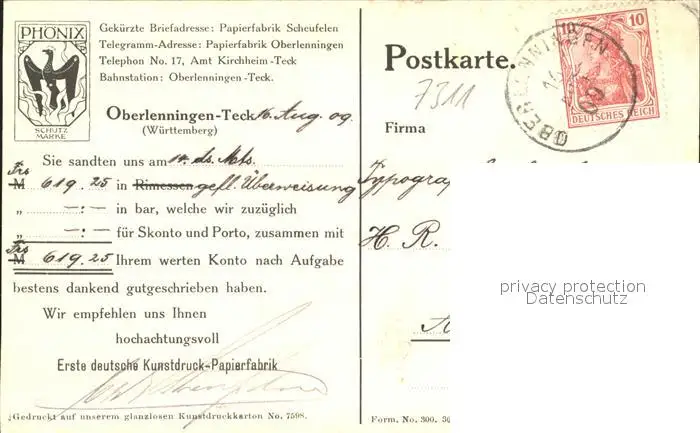 PHÖNIX
SCHUTZ
MARKE
Gekürzte Briefadresse: Papierfabrik Scheufelen
Telegramm-Adresse: Papierfabrik Oberlenningen
Telephon No. 17, Amt Kirchheim-Teck
Bahnstation: Oberlenningen-Teck.
Oberlenningen-Teck 16. Aug. 09.
(Württemberg)
Sie sandten uns am 14. ds. Mts.
Frs
M 619.25 in Rimessen gefl. Überweisung
„ —:— in bar, welche wir zuzüglich
„ —:— für Skonto und Porto, zusammen mit
Frs
M 619.25 Ihrem werten Konto nach Aufgabe
bestens dankend gutgeschrieben haben.
Wir empfehlen uns Ihnen
hochachtungsvoll
Erste deutsche Kunstdruck-Papierfabrik
Gedruckt auf unserem glanzlosen Kunstdruckkarton No. 7598.
Postkarte.
7311
10 10
DEUTSCHES REICH
OBERLENNINGEN
09
Firma
Typogra
H. R.
privacy protection
Datenschutz
Form. No. 300.